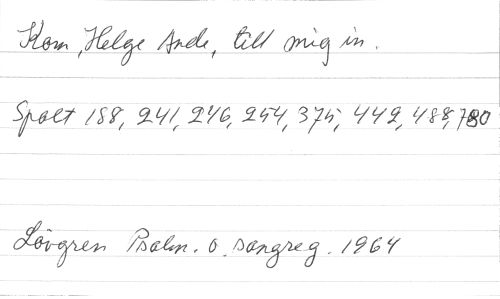 Kom, Helge Ande, till mig in.
Spalt 188, 241, 246, 254, 375, 442, 488, 780
Lövgren Psalm. o. sångreg. 1964